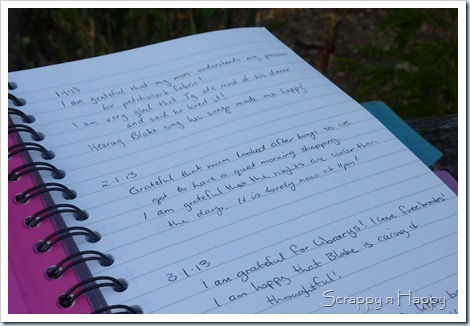 1.1.13
I am grateful that my mum understands my passion
for patchwork fabric!
I am very glad that Ty ate most of his dinner
and said he loved it!
Hearing Blake sing his songs made me happy
2.1.13
Grateful that mum looked after boys so we
got to have a quiet morning shopping.
I am grateful that the nights are cooler than
the days. It is lovely now at 4pm!
3.1.13
I am grateful for librarys! I love free books!
I am happy that Blake is caring &
thoughtful!
Scrappy n Happy